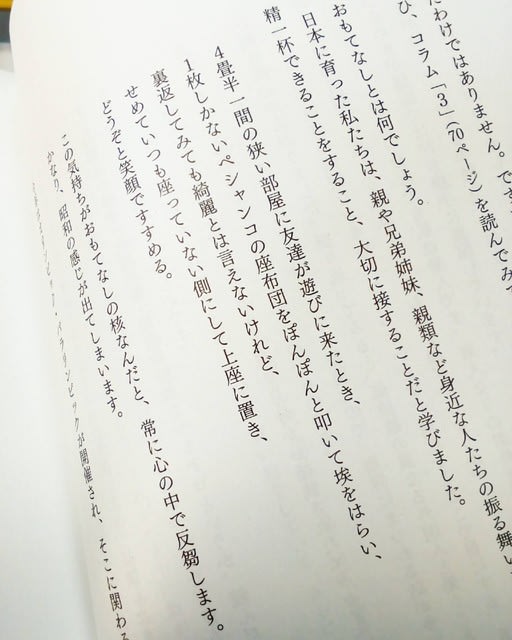 たわけではありません。です
ひ、コラム「3」(70ページ)を読んでみて
おもてなしとは何でしょう。
日本に育った私たちは、親や兄弟姉妹、親類など身近な人たちの振る舞い
精一杯できることをすること、大切に接することだと学びました。
4畳半一間の狭い部屋に友達が遊びに来たとき、
1枚しかないペシャンコの座布団をぽんぽんと叩いて埃をはらい、
裏返してみても綺麗とは言えないけれど、
せめていつも座っていない側にして上座に置き、
どうぞと笑顔ですすめる。
この気持ちがおもてなしの核なんだと、常に心の中で反芻します。
かなり、昭和の感じが出てしまいます。
リンピック・パラリンピックが開催され、そこに関わる